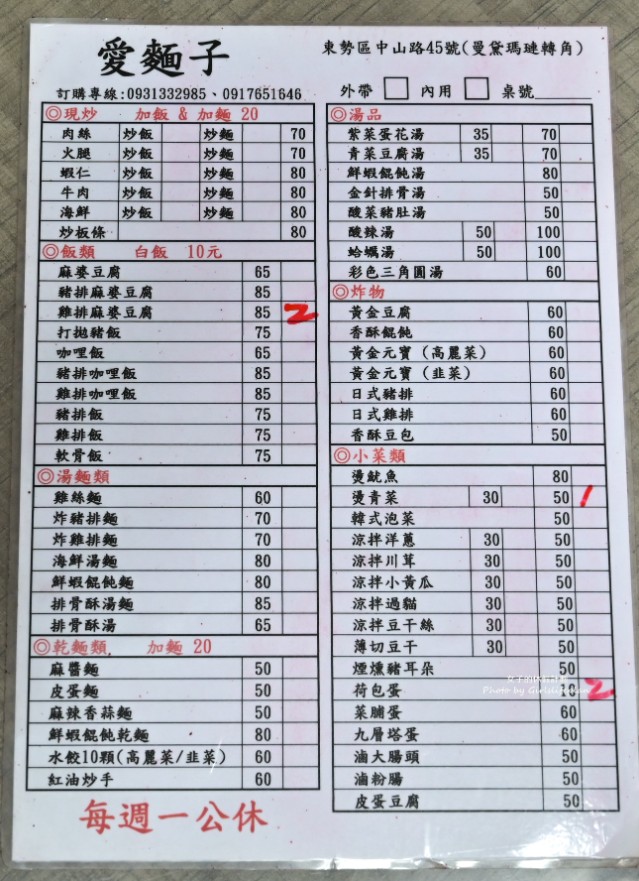 愛麵子
東勢區中山路45號(曼黛瑪璉轉角)
訂購專線:0931332985、0917651646
外帶 內用 桌號
◎現炒 加飯 & 加麵 20
肉絲 炒飯 炒麵 70
火腿 炒飯 炒麵 70
蝦仁 炒飯 炒麵 80
牛肉 炒飯 炒麵 80
海鮮 炒飯 炒麵 80
炒板條 80
◎飯類 白飯 10元
麻婆豆腐 65
豬排麻婆豆腐 85
雞排麻婆豆腐 85 2
打拋豬飯 75
咖哩飯 65
豬排咖哩飯 85
雞排咖哩飯 85
豬排飯 75
雞排飯 75
軟骨飯 75
◎湯麵類
雞絲麵 60
炸豬排麵 70
炸雞排麵 70
海鮮湯麵 80
鮮蝦餛飩麵 80
排骨酥湯麵 85
排骨酥湯 65
◎乾麵類 加麵 20
麻醬麵 50
皮蛋麵 50
麻辣香蒜麵 50
鮮蝦餛飩乾麵 80
水餃10顆(高麗菜/韭菜) 60
紅油炒手 60
每週一公休
◎湯品
紫菜蛋花湯 35 70
青菜豆腐湯 35 70
鮮蝦餛飩湯 80
金針排骨湯 50
酸菜豬肚湯 50
酸辣湯 50 100
蛤蠣湯 50 100
彩色三角圓湯 60
◎炸物
黃金豆腐 60
香酥餛飩 60
黃金元寶(高麗菜) 60
黃金元寶(韭菜) 60
日式豬排 60
日式雞排 60
香酥豆包 50
◎小菜類
燙魷魚 80
燙青菜 30 50 1
韓式泡菜 50
涼拌洋蔥 30 50
涼拌川茸 30 50
涼拌小黃瓜 30 50
涼拌過貓 30 50
涼拌豆干絲 30 50
薄切豆干 30 50
煙燻豬耳朵 50
荷包蛋 2
Photo by
菜脯蛋 60
九層塔蛋 60
滷大腸頭 50
滷粉腸 50
皮蛋豆腐 50